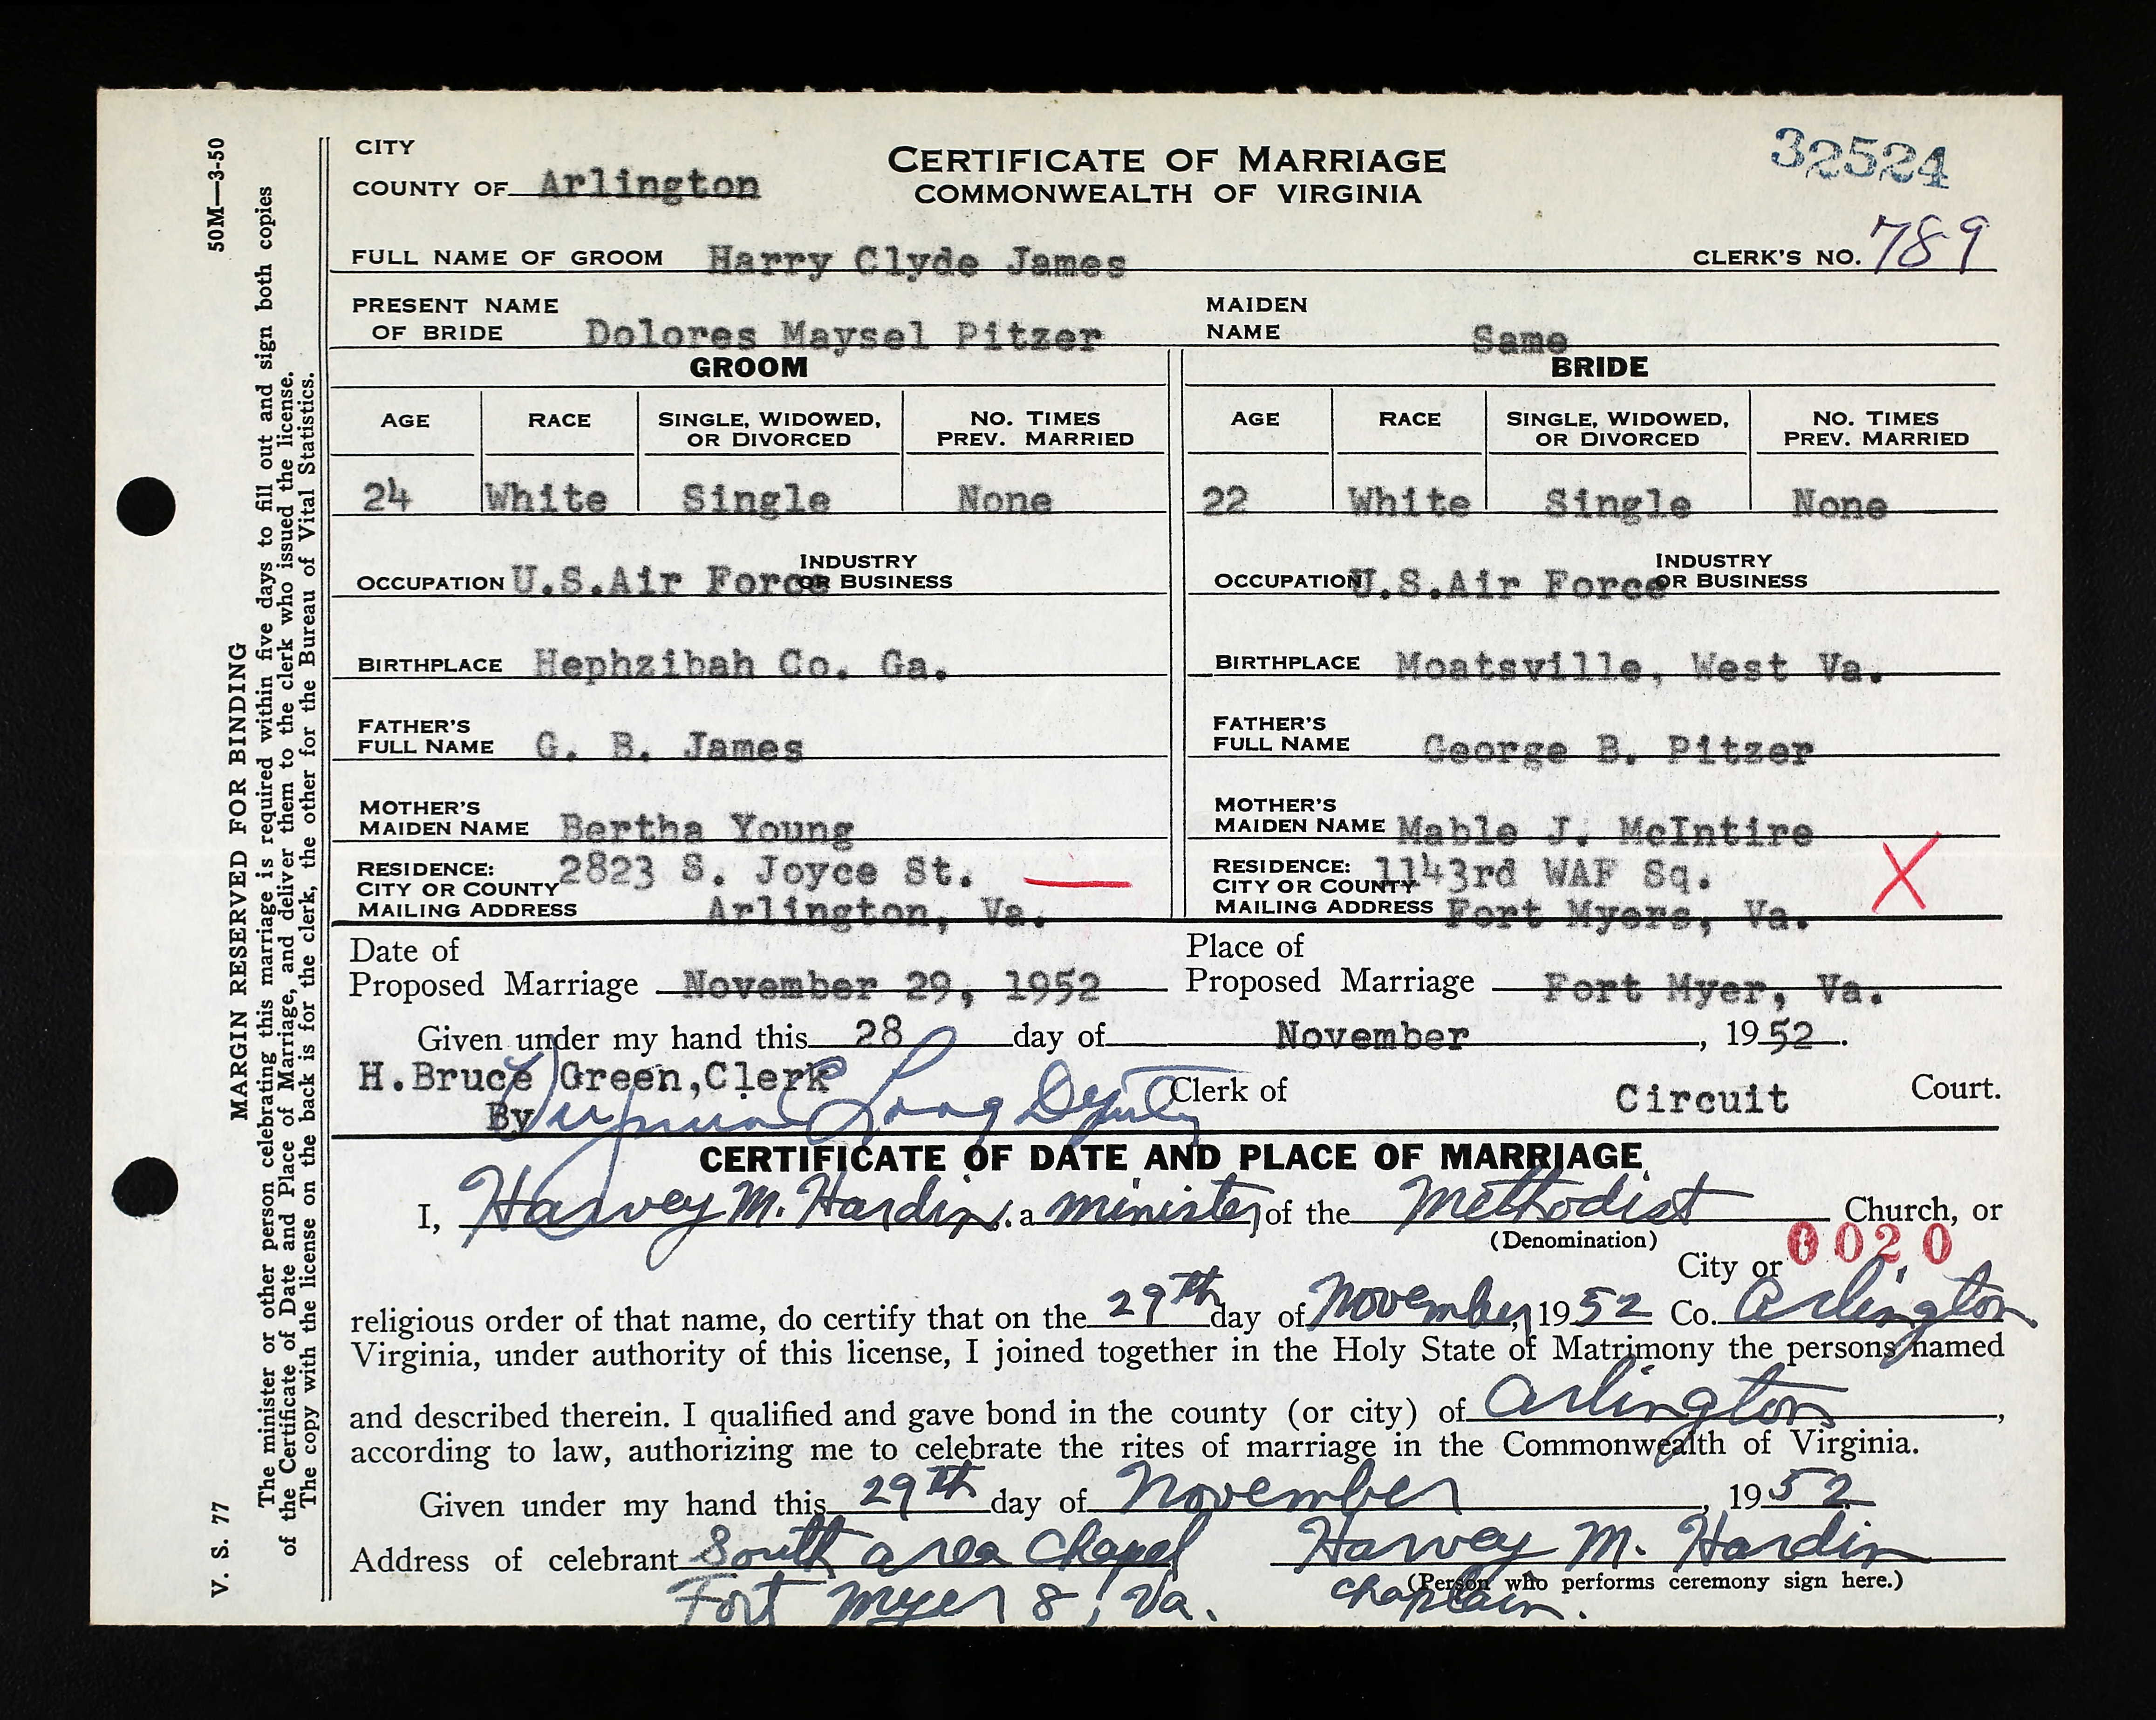 50M—3-50
MARGIN RESERVED FOR BINDING
V. S. 77
The minister or other person celebrating this marriage is required within five days to fill out and sign both copies
of the Certificate of Date and Place of Marriage, and deliver them to the clerk who issued the license.
The copy with the license on the back is for the clerk, the other for the Bureau of Vital Statistics.
CITY
COUNTY OF Arlington
CERTIFICATE OF MARRIAGE
COMMONWEALTH OF VIRGINIA
32524
FULL NAME OF GROOM Harry Clyde James CLERK'S NO. 789
PRESENT NAME OF BRIDE Dolores Maysel Pitzer MAIDEN NAME Same
GROOM BRIDE
AGE RACE SINGLE, WIDOWED, OR DIVORCED NO. TIMES PREV. MARRIED AGE RACE SINGLE, WIDOWED, OR DIVORCED NO. TIMES PREV. MARRIED
24 White Single None 22 White Single None
OCCUPATION U.S.Air Force INDUSTRY OR BUSINESS OCCUPATION U.S.Air Force INDUSTRY OR BUSINESS
BIRTHPLACE Hephzibah Co. Ga. BIRTHPLACE Moatsville, West Va.
FATHER'S FULL NAME G. B. James FATHER'S FULL NAME George B. Pitzer
MOTHER'S MAIDEN NAME Bertha Young MOTHER'S MAIDEN NAME Mable J. McIntire
RESIDENCE: CITY OR COUNTY MAILING ADDRESS 2823 S. Joyce St. Arlington, Va. RESIDENCE: CITY OR COUNTY MAILING ADDRESS 1143rd WAF Sq. Fort Myers, Va. X
Date of Proposed Marriage November 29, 1952 Place of Proposed Marriage Fort Myer, Va.
Given under my hand this 28 day of November, 1952.
H.Bruce Green,Clerk
By Virginia Long Deputy Clerk of Circuit Court.
CERTIFICATE OF DATE AND PLACE OF MARRIAGE
I, Harvey M. Hardin, a minister of the Methodist Church, or
(Denomination)
0020
City or
religious order of that name, do certify that on the 29th day of November, 1952 Co. Arlington
Virginia, under authority of this license, I joined together in the Holy State of Matrimony the persons named
and described therein. I qualified and gave bond in the county (or city) of Arlington,
according to law, authorizing me to celebrate the rites of marriage in the Commonwealth of Virginia.
Given under my hand this 29th day of November, 1952
Address of celebrant South area Chapel Harvey M. Hardin
(Person who performs ceremony sign here.)
Fort Myer 8, Va. Chaplain.